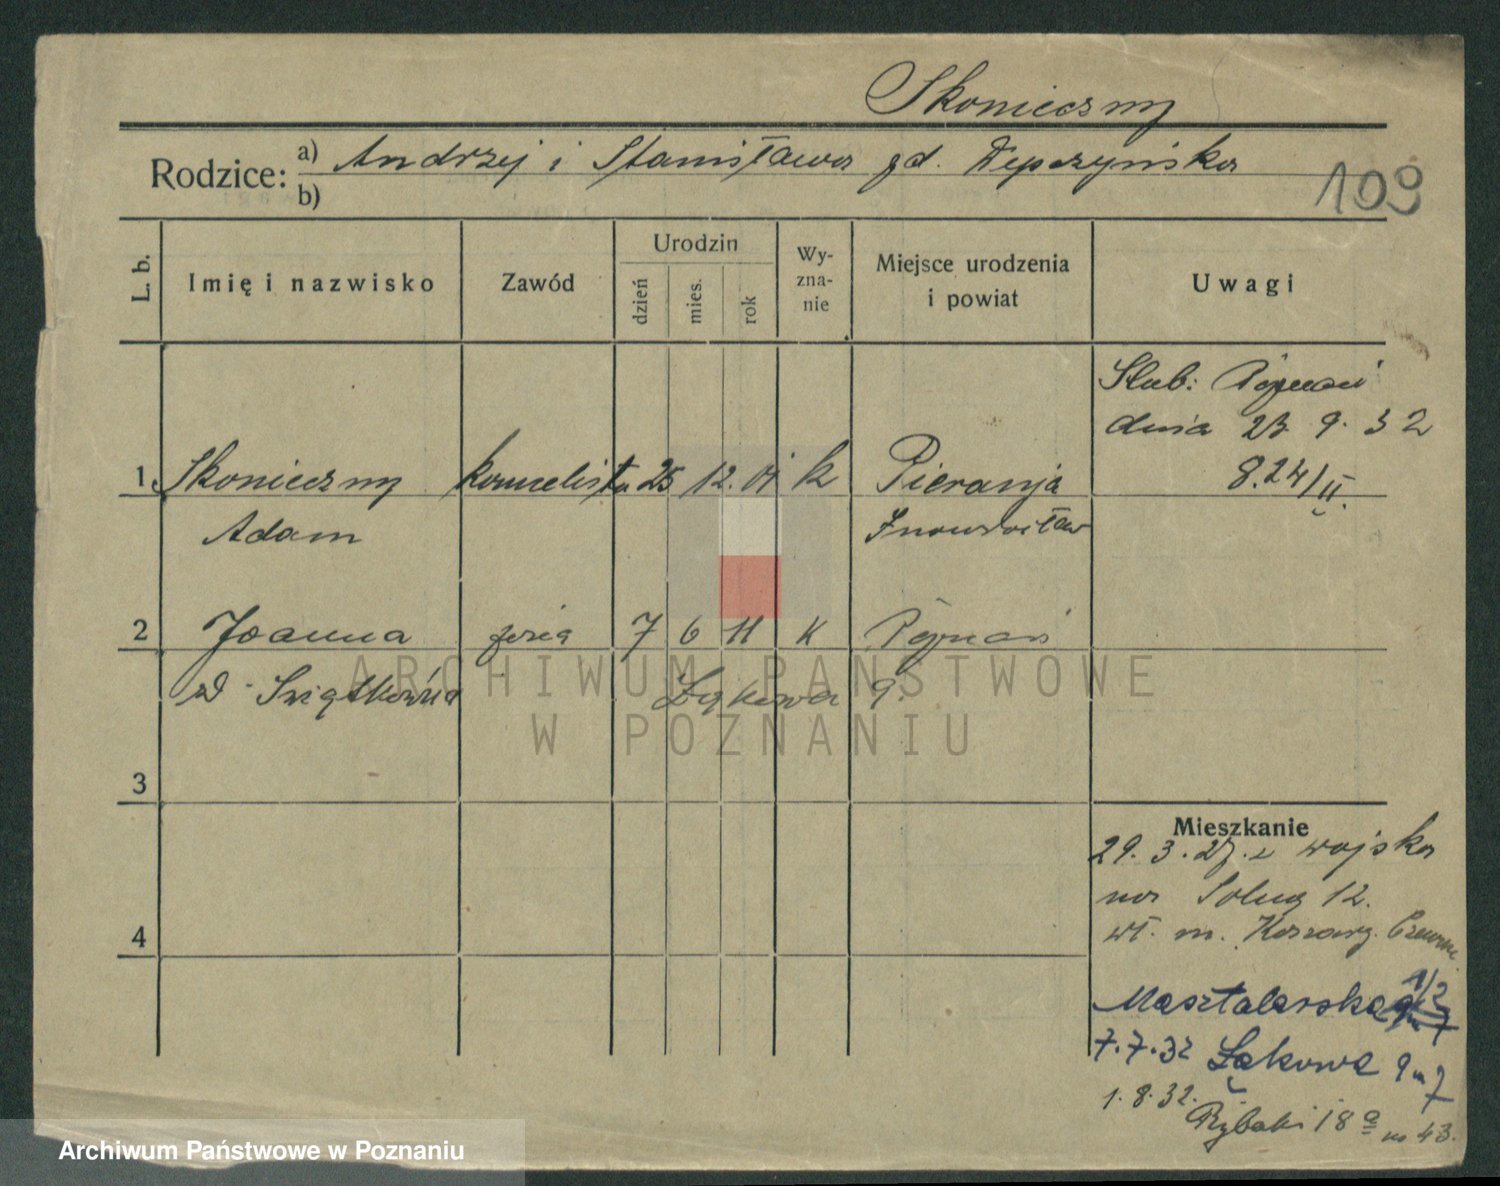 Skonieczny
Rodzice: a) Andrzej i Stanisława zd. Depczyńska
b)
109
L. b.
Imię i nazwisko
Zawód
Urodzin
dzień
mies.
rok
Wy-
zna-
nie
Miejsce urodzenia
i powiat
Uwagi
Ślub: Poznań
dnia 23 9. 32
8.24/II.
1 Skonieczny kancelista 25 12. 01 k Pieranja
Adam Inowrocław
2 Joanna żona 7 6 11 k Poznań
Łąkowa 9.
3
4
Mieszkanie
29. 3. 27. z wojska
na 12.
wł. m. Koszary.
Masztalarska 1/2
7.7.32 Łąkowa 9 m 7
1. 8. 32. Rybaki 18 a m 43.
ARCHIWUM PAŃSTWOWE
W POZNANIU
Archiwum Państwowe w Poznaniu